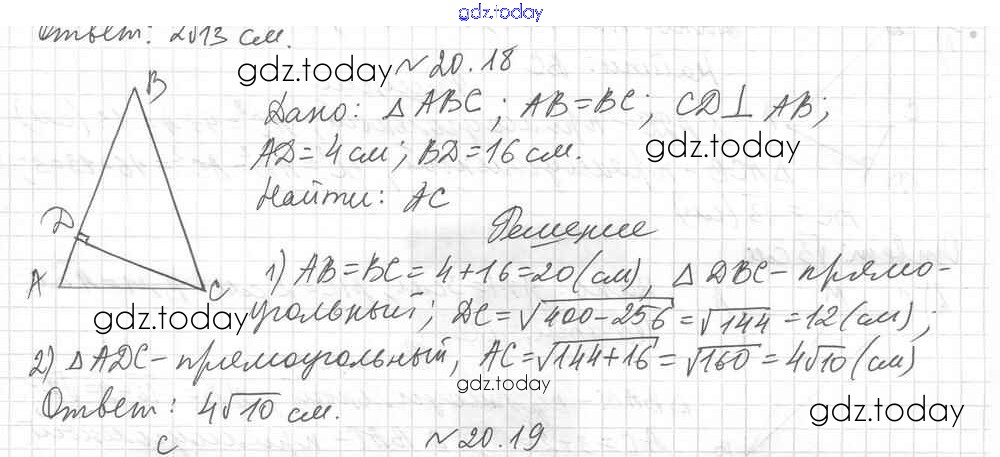 gdz.today
Ответ: 2√13 см.
gdz.today №20.18
B
Дано: △ABC; AB=BC; CD⊥AB;
AD=4см; BD=16см. gdz.today
Найти: AC
Решение
D
A
C
1) AB=BC=4+16=20(см), △DBC-прямо-
gdz.today угольный; DC=√400-256=√144=12(см);
2) △ADC-прямоугольный, AC=√144+16=√160=4√10(см)
gdz.today
Ответ: 4√10 см. gdz.today
C №20.19